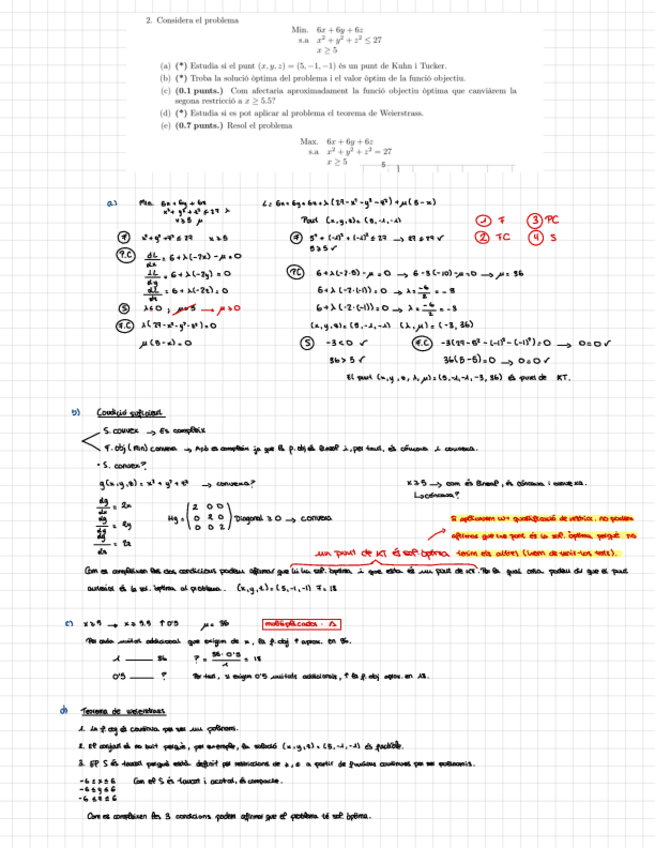 2. Considera el problema
Min. 6x + 6y + 6z
s.a x² + y² + z² ≤ 27
x ≥ 5
(a) (*) Estudia si el punt (x, y, z) = (5, −1, −1) és un punt de Kuhn i Tucker.
(b) (*) Troba la solució òptima del problema i el valor òptim de la funció objectiu.
(c) (0.1 punts.) Com afectaria aproximadament la funció objectiu òptima que canviàrem la
segona restricció a x ≥ 5.5?
(d) (*) Estudia si es pot aplicar al problema el teorema de Weierstrass.
(e) (0.7 punts.) Resol el problema
Max. 6x + 6y + 6z
s.a x² + y² + z² = 27
x ≥ 5
5
1
a) Min. 6x + 6y + 6z
x² + y² + z² ≤ 27 λ
x ≥ 5 μ
L = 6x + 6y + 6z + λ(27 - x² - y² - z²) + μ(5 - x)
Punt (x, y, z) = (5, -1, -1)
① F ③ PC
② TC ④ S
x² + y² + z² ≤ 27 x ≥ 5
5² + (-1)² + (-1)² ≤ 27 → 27 ≤ 27 ✓
5 ≥ 5 ✓
P.C dL/dx = 6 + λ(-2x) - μ = 0
dL/dy = 6 + λ(-2y) = 0
= 6 + λ(-2z) = 0
PC 6 + λ(-2·5) - μ = 0 → 6 - 3(-10) - μ = 0 → μ = 36
6 + λ(-2·(-1)) = 0 → λ = -6/2 = -3
6 + λ(-2·(-1)) = 0 → λ = -6/2 = -3
(x, y, z) = (5, -1, -1) (λ, μ) = (-3, 36)
S λ ≤ 0 ; → μ ≥ 0
λ(27 - x² - y² - z²) = 0
μ(5 - x) = 0
S -3 < 0 ✓
36 > 5 ✓
-3(27 - 5² - (-1)² - (-1)²) = 0 → 0 = 0 ✓
36(5 - 5) = 0 → 0 = 0 ✓
El punt (x, y, z, λ, μ) = (5, -1, -1, -3, 36) és punt de KT.
b) Condició suficient
S. convex → Es compleix
F. obj (min) convexa → Açò es compleix ja que la f. obj és lineal i, per tant, és còncava i convexa.
• S. convex?
g(x, y, z) = x² + y² + z² → convexa?
x ≥ 5 → com és lineal, és còncava i convexa.
= 2x
= 2y
= 2z
Hg = (2 0 0
0 2 0
0 0 2) Diagonal ≥ 0 → convexa
un punt de KT és sol. òptima
Com es compleixen les dos condicions podem afirmar que
anterior és la sol. òptima al problema. (x, y, z) = (5, -1, -1) F = 18
c) x ≥ 5 → x ≥ 5.5 ↑ 0'5 μ = 36
Per cada unitat addicional que exigim de x, la f. obj ↑ aprox. en 36.
1 —— 36 ? = 36·0'5/1 = 18
0'5 —— ? Per tant, si exigim 0'5 unitats addicionals, ↑ la f. obj aprox. en 18.
d) Teorema de Weierstrass
1. La f. obj és contínua per ser un polinomi.
2. El conjunt és no buit perquè, per exemple, la solució (x, y, z) = (5, -1, -1) és factible.
3. El S és tancat perquè està definit per restriccions de a partir de funcions contínues per ser polinomis.
-6 ≤ x ≤ 6 Com el S és tancat i acotat, és compacte.
-6 ≤ y ≤ 6
-6 ≤ z ≤ 6
Com es compleixen les 3 condicions podem afirmar que el problema té sol. òptima.